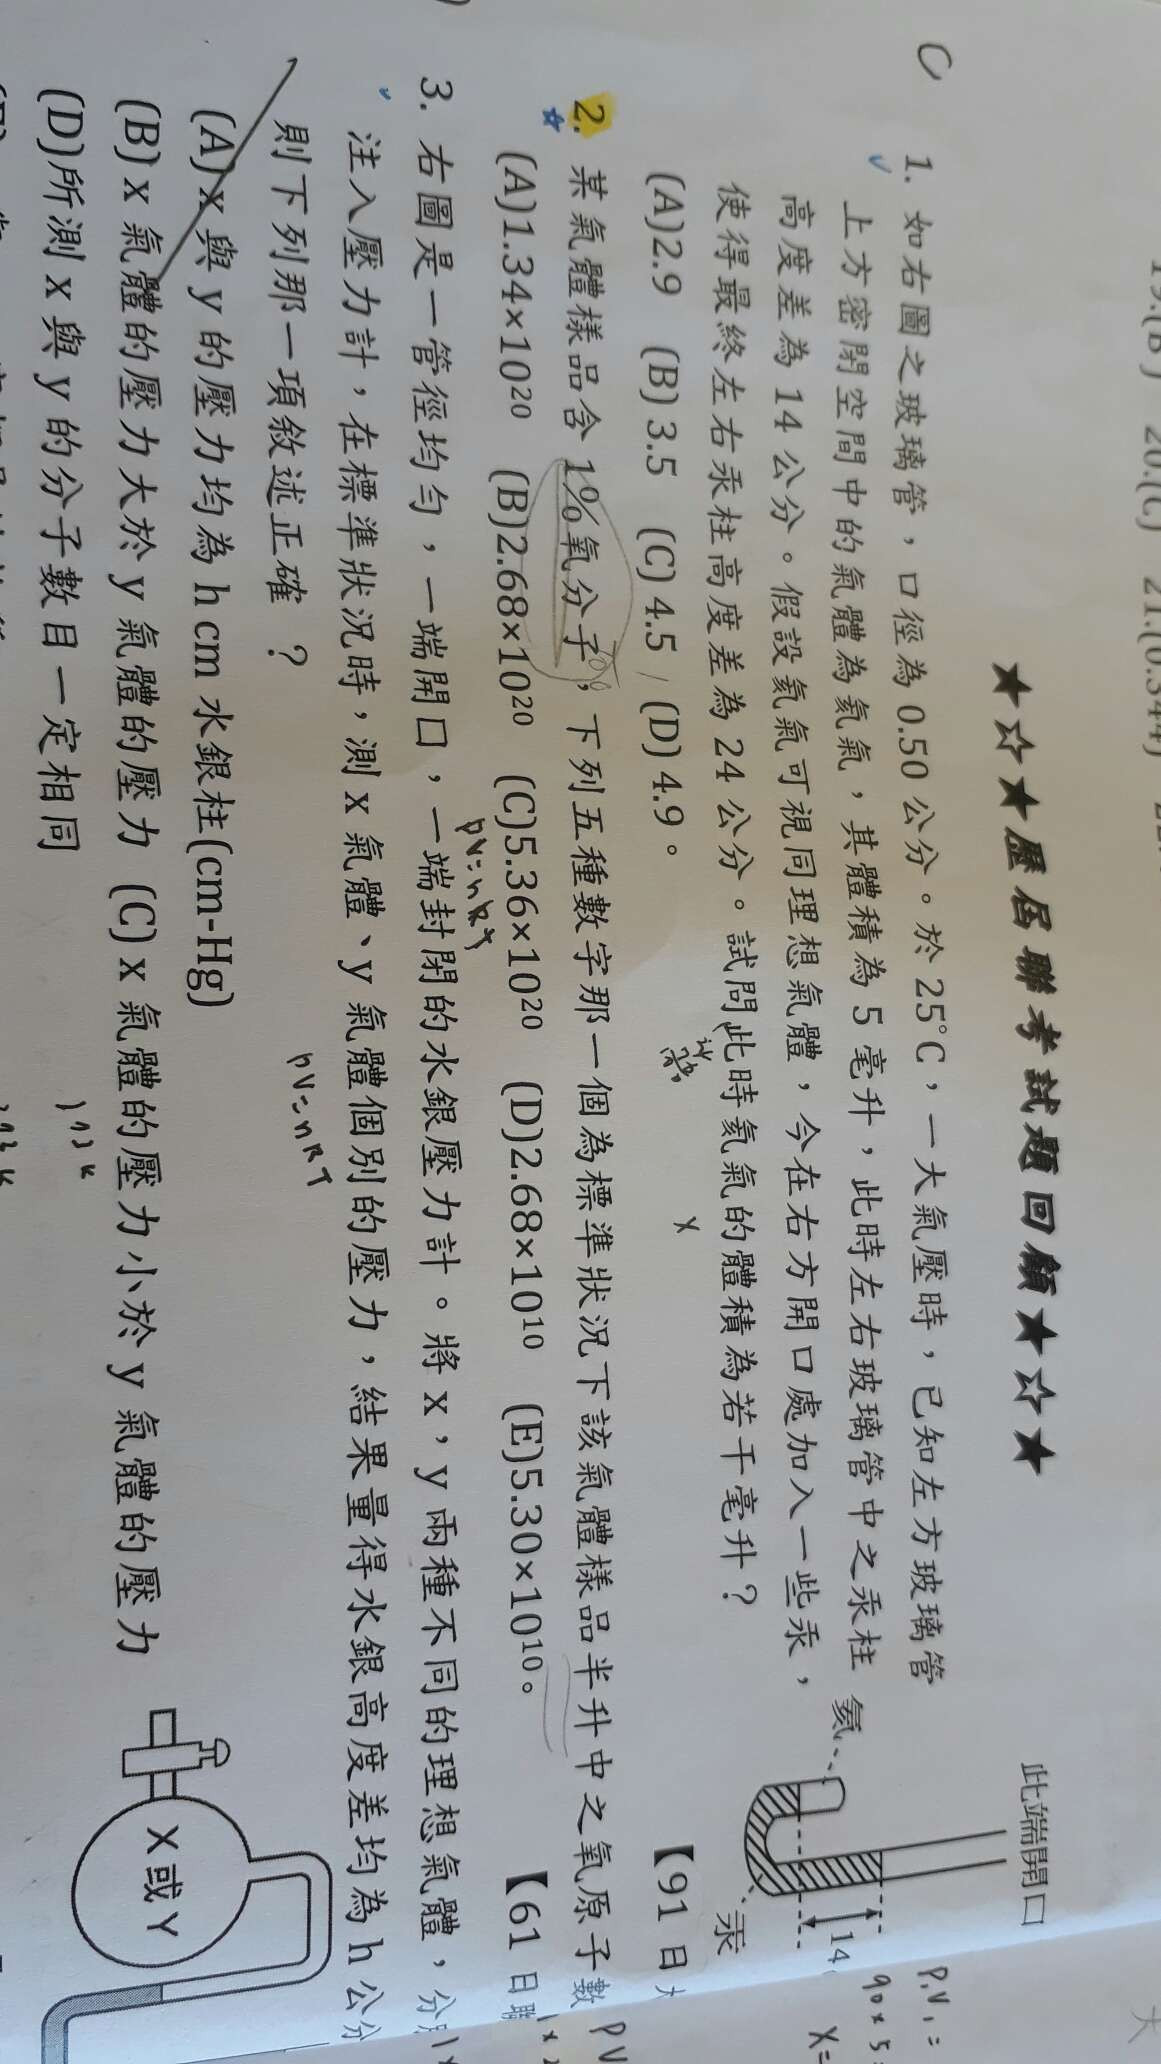 19.(B) 20.(C) 21.(0.344)
★☆★歷屆聯考試題回顧★☆★
此端開口
C
1. 如右圖之玻璃管，口徑為 0.50 公分。於 25°C，一大氣壓時，已知左方玻璃管
上方密閉空間中的氣體為氦氣，其體積為 5 毫升，此時左右玻璃管中之汞柱
高度差為 14 公分。假設氦氣可視同理想氣體，今在右方開口處加入一些汞，
使得最終左右汞柱高度差為 24 公分。試問此時氦氣的體積為若干毫升？
(A)2.9 (B)3.5 (C)4.5 (D)4.9。
【91 日大
氦
14
汞
P₁V₁=
90×5=
X=
2. 某氣體樣品含 1%氧分子，下列五種數字那一個為標準狀況下該氣體樣品半升中之氧原子數
(A)1.34×10²⁰ (B)2.68×10²⁰ (C)5.36×10²⁰ (D)2.68×10¹⁰ (E)5.30×10¹⁰。
【61 日聯
PV
PV=nRT
3. 右圖是一管徑均勻，一端開口，一端封閉的水銀壓力計。將 x，y 兩種不同的理想氣體，分別
注入壓力計，在標準狀況時，測 x 氣體、y 氣體個別的壓力，結果量得水銀高度差均為 h 公分
則下列那一項敘述正確？
PV=nRT
(A) x 與 y 的壓力均為 h cm 水銀柱(cm-Hg)
(B) x 氣體的壓力大於 y 氣體的壓力 (C) x 氣體的壓力小於 y 氣體的壓力
(D)所測 x 與 y 的分子數目一定相同
X 或 Y